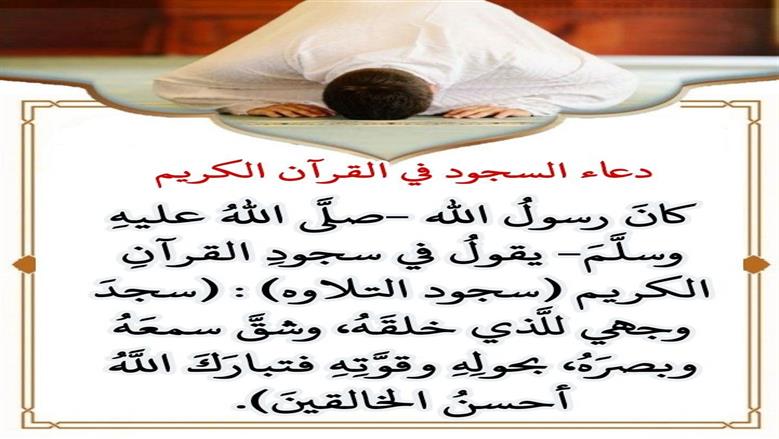 دعاء السجود في القرآن الكريم
كانَ رسولُ الله –صلَّى اللهُ عليهِ
وسلَّمَ– يقولُ في سجودِ القرآنِ
الكريم (سجود التلاوه) : (سجدَ
وجهي للَّذي خلقَهُ، وشقَّ سمعَهُ
وبصرَهُ، بحولِهِ وقوَّتِهِ فتبارَكَ اللَّهُ
أحسنُ الخالقينَ).